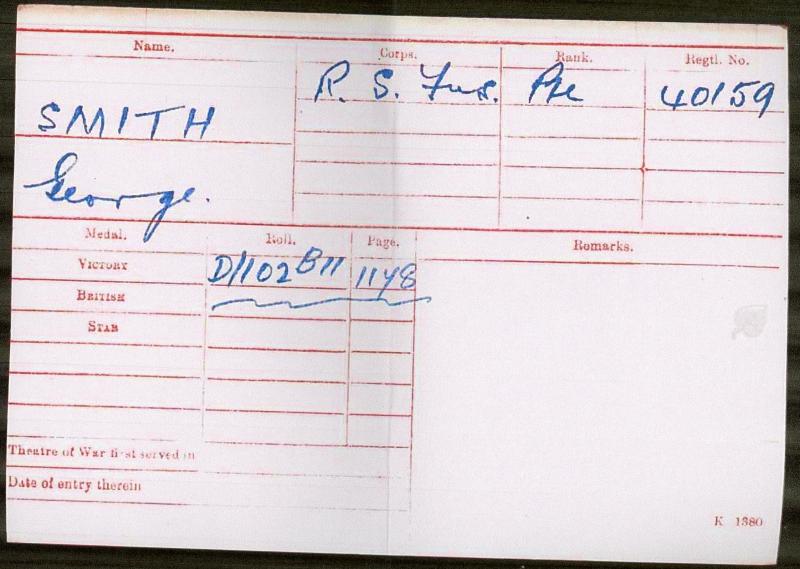 Name. Corps. Rank. Regtl. No.
R. S. Fus. Pte 40159
SMITH
George.
Medal. Roll. Page. Remarks.
VICTORY D/102 B11 1148
BRITISH
STAR
Theatre of War first served in
Date of entry therein
K 1380